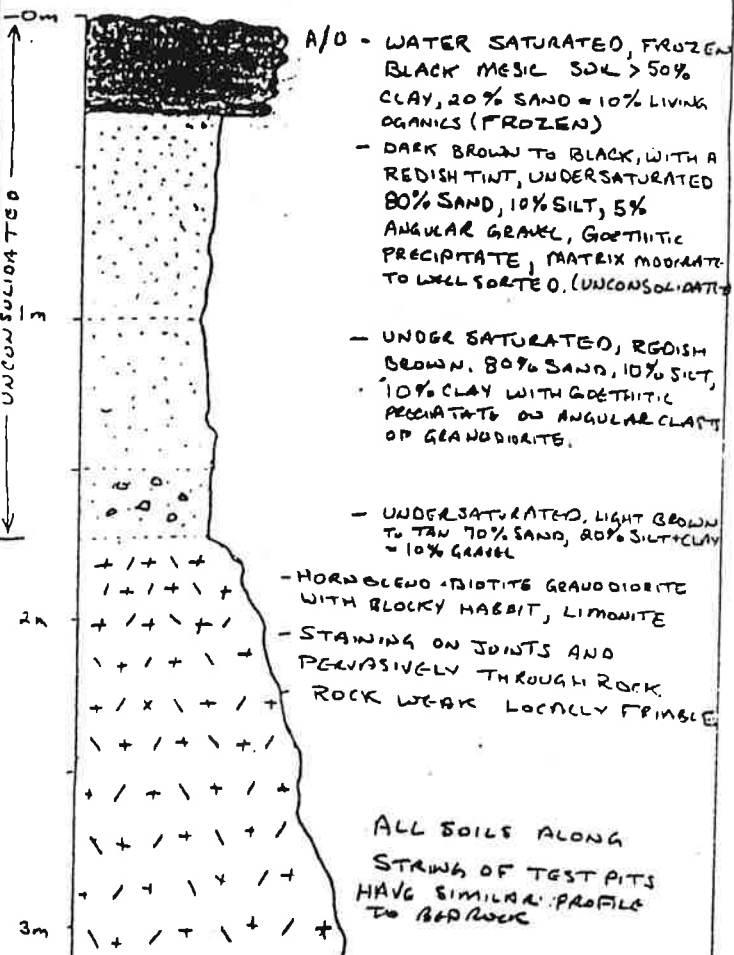 0m
A/O - WATER SATURATED, FROZEN
BLACK MESIC SOIL > 50%
CLAY, 20% SAND ≈ 10% LIVING
OGANICS (FROZEN)
- DARK BROWN TO BLACK, WITH A
REDISH TINT, UNDERSATURATED
80% SAND, 10% SILT, 5%
ANGULAR GRAVEL, GOETHITIC
PRECIPITATE, MATRIX MODERATE
TO WELL SORTED. (UNCONSOLIDATED
UNCONSOLIDATED
1m
- UNDER SATURATED, REDISH
BROWN. 80% SAND, 10% SILT,
10% CLAY WITH GOETHITIC
PRECIATATE ON ANGULAR CLASTS
OF GRANODIORITE.
- UNDERSATURATED, LIGHT BROWN
TO TAN 70% SAND, 20% SILT+CLAY
≈ 10% GRAVEL
- HORNBLEND + BIOTITE GRANODIORITE
WITH BLOCKY HABBIT, LIMONITE
2m
- STAINING ON JOINTS AND
PERVASIVELY THROUGH ROCK.
ROCK WEAK LOCALLY FRIABLE
ALL SOILS ALONG
STRING OF TEST PITS
HAVE SIMILAR PROFILE
TO BEDROCK
3m